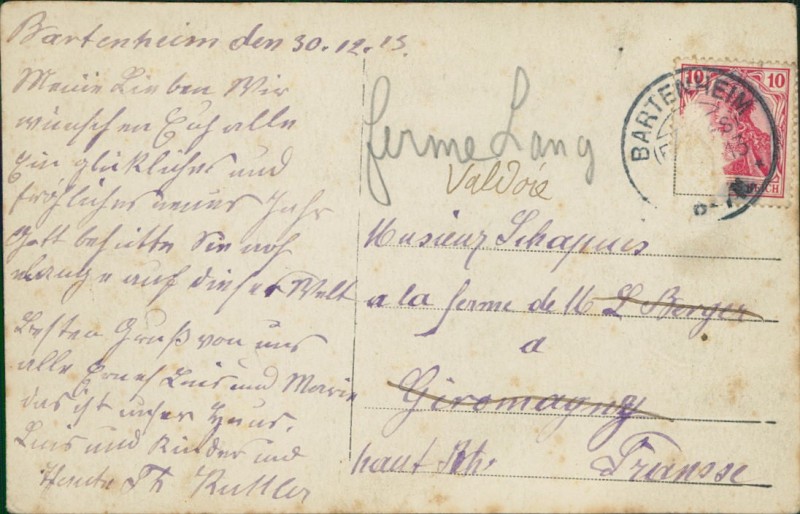 Bartenheim den 30.12.13.
Meine Lieben Wir
wünschen Euch alle
Ein glückliches und
fröhliches neues Jahr
Gott behütte Sie noch
lange auf dieser Welt
Besten Gruß von uns
alle Luis und Marie
das ist unser Haus.
Luis und Kinder und
Th Rutler
ferme Lang
Valdoie
Musieur Schapuis
a la ferme de M L Berger
a
Giromagny
haut Rh. Fransse
BARTENHEIM
10 10